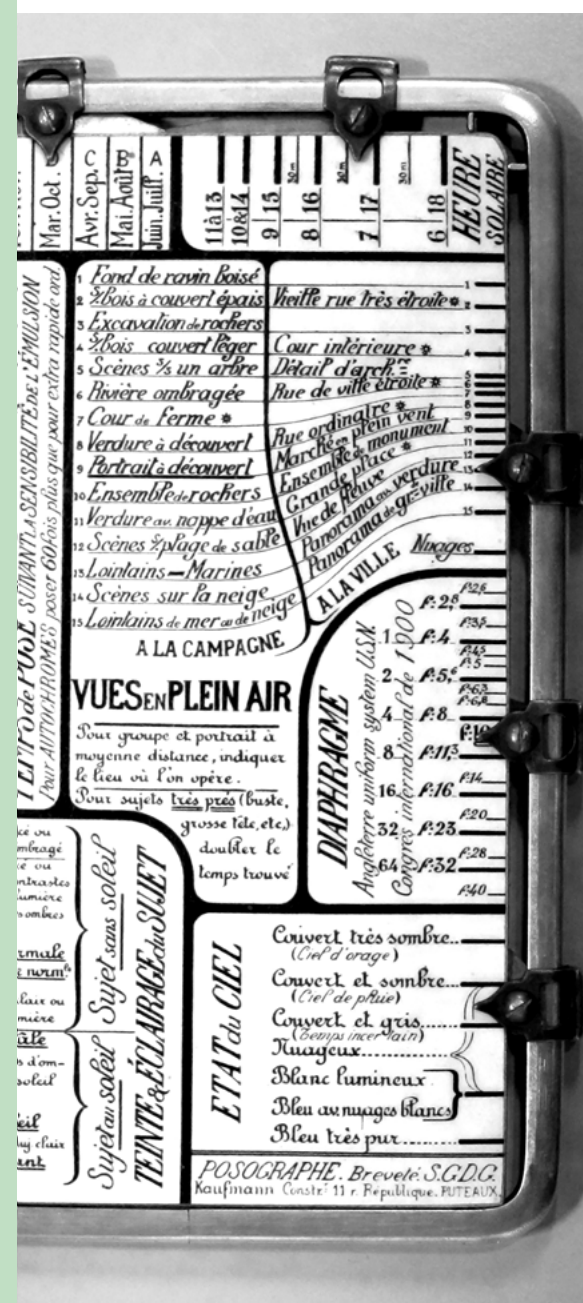 Mar. Oct.
C
Avr. Sep.
B
Mai. Août
A
Juin. Juill.
11 à 13
10 & 14
9 15
8 16
7 17
6 18
30m
30m
30m
HEURE
SOLAIRE
TEMPS de POSE SUIVANT LA SENSIBILITÉ DE L'ÉMULSION
Pour AUTOCHROMES, poser 60 fois plus que pour extra rapide ord.
1 Fond de ravin Boisé
2 S/Bois à couvert épais
3 Excavation de rochers
4 S/Bois couvert léger
5 Scènes s/s un arbre
6 Rivière ombragée
7 Cour de Ferme *
8 Verdure à découvert
9 Portrait à découvert
10 Ensemble de rochers
11 Verdure av. nappe d'eau
12 Scènes s/plage de sable
13 Lointains — Marines
14 Scènes sur la neige
15 Lointains de mer ou de neige
A LA CAMPAGNE
Vieille rue très étroite *
Cour intérieure *
Détail d'arch.re
Rue de ville étroite *
Rue ordinaire *
Marché en plein vent
Ensemble de monument
Grande place *
Vue de fleuve
Panorama av. verdure
Panorama de gr.de ville
A LA VILLE
Nuages
1
2
3
4
5
6
7
8
9
10
11
12
13
14
15
VUES EN PLEIN AIR
Pour groupe et portrait à
moyenne distance, indiquer
le lieu où l'on opère.
Pour sujets très près (buste,
grosse tête, etc.)
doubler le
temps trouvé
DIAPHRAGME
Angleterre uniform system U.S.N.
Congrès international de 1900
F:2,5
F:2,8
F:3,5
1 F:4
F:4,5
F:5
2 F:5,6
F:6,3
F:6,8
4 F:8
F:10
8 F:11,3
F:14
16 F:16
F:20
32 F:23
F:28
64 F:32
F:40
cé ou
mbragé
é ou
ntrastes
umière
sombres
rmale
normle
lair ou
mière
ale
s d'om-
soleil
eil
uy clair
ant
Sujet sans soleil
Sujet au soleil
TEINTE & ÉCLAIRAGE du SUJET
ETAT du CIEL
Couvert très sombre..
(Ciel d'orage)
Couvert et sombre...
(Ciel de pluie)
Couvert et gris......
(Temps incertain)
Nuageux............
Blanc lumineux
Bleu av. nuages blancs
Bleu très pur........
POSOGRAPHE. Breveté. S.G.D.G.
Kaufmann Constr. 11 r. République. PUTEAUX.